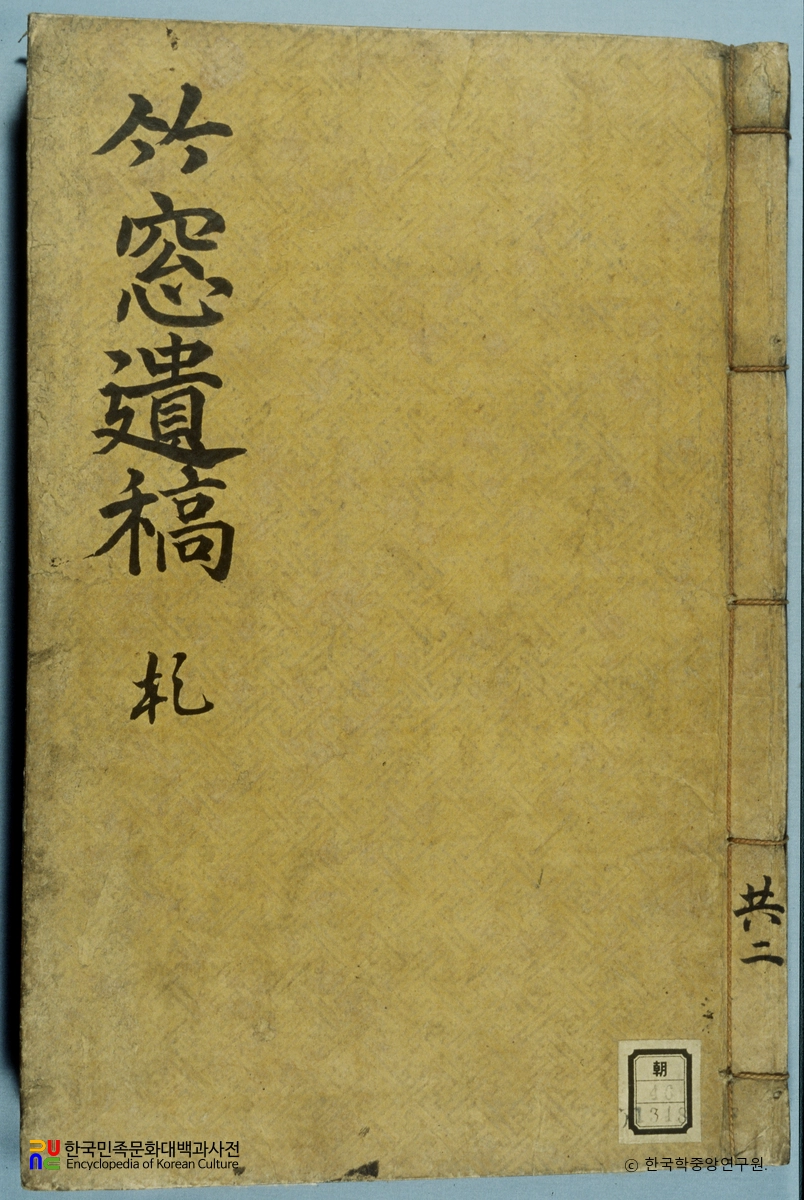 竹窓遺稿
乾
共二
朝
40
1318
한국민족문화대백과사전
Encyclopedia of Korean Culture
ⓒ 한국학중앙연구원.